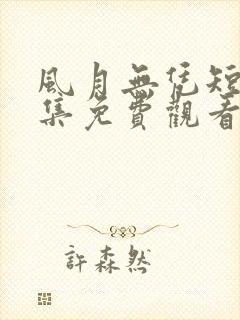 風月無凭短
集免費觀看
許森然